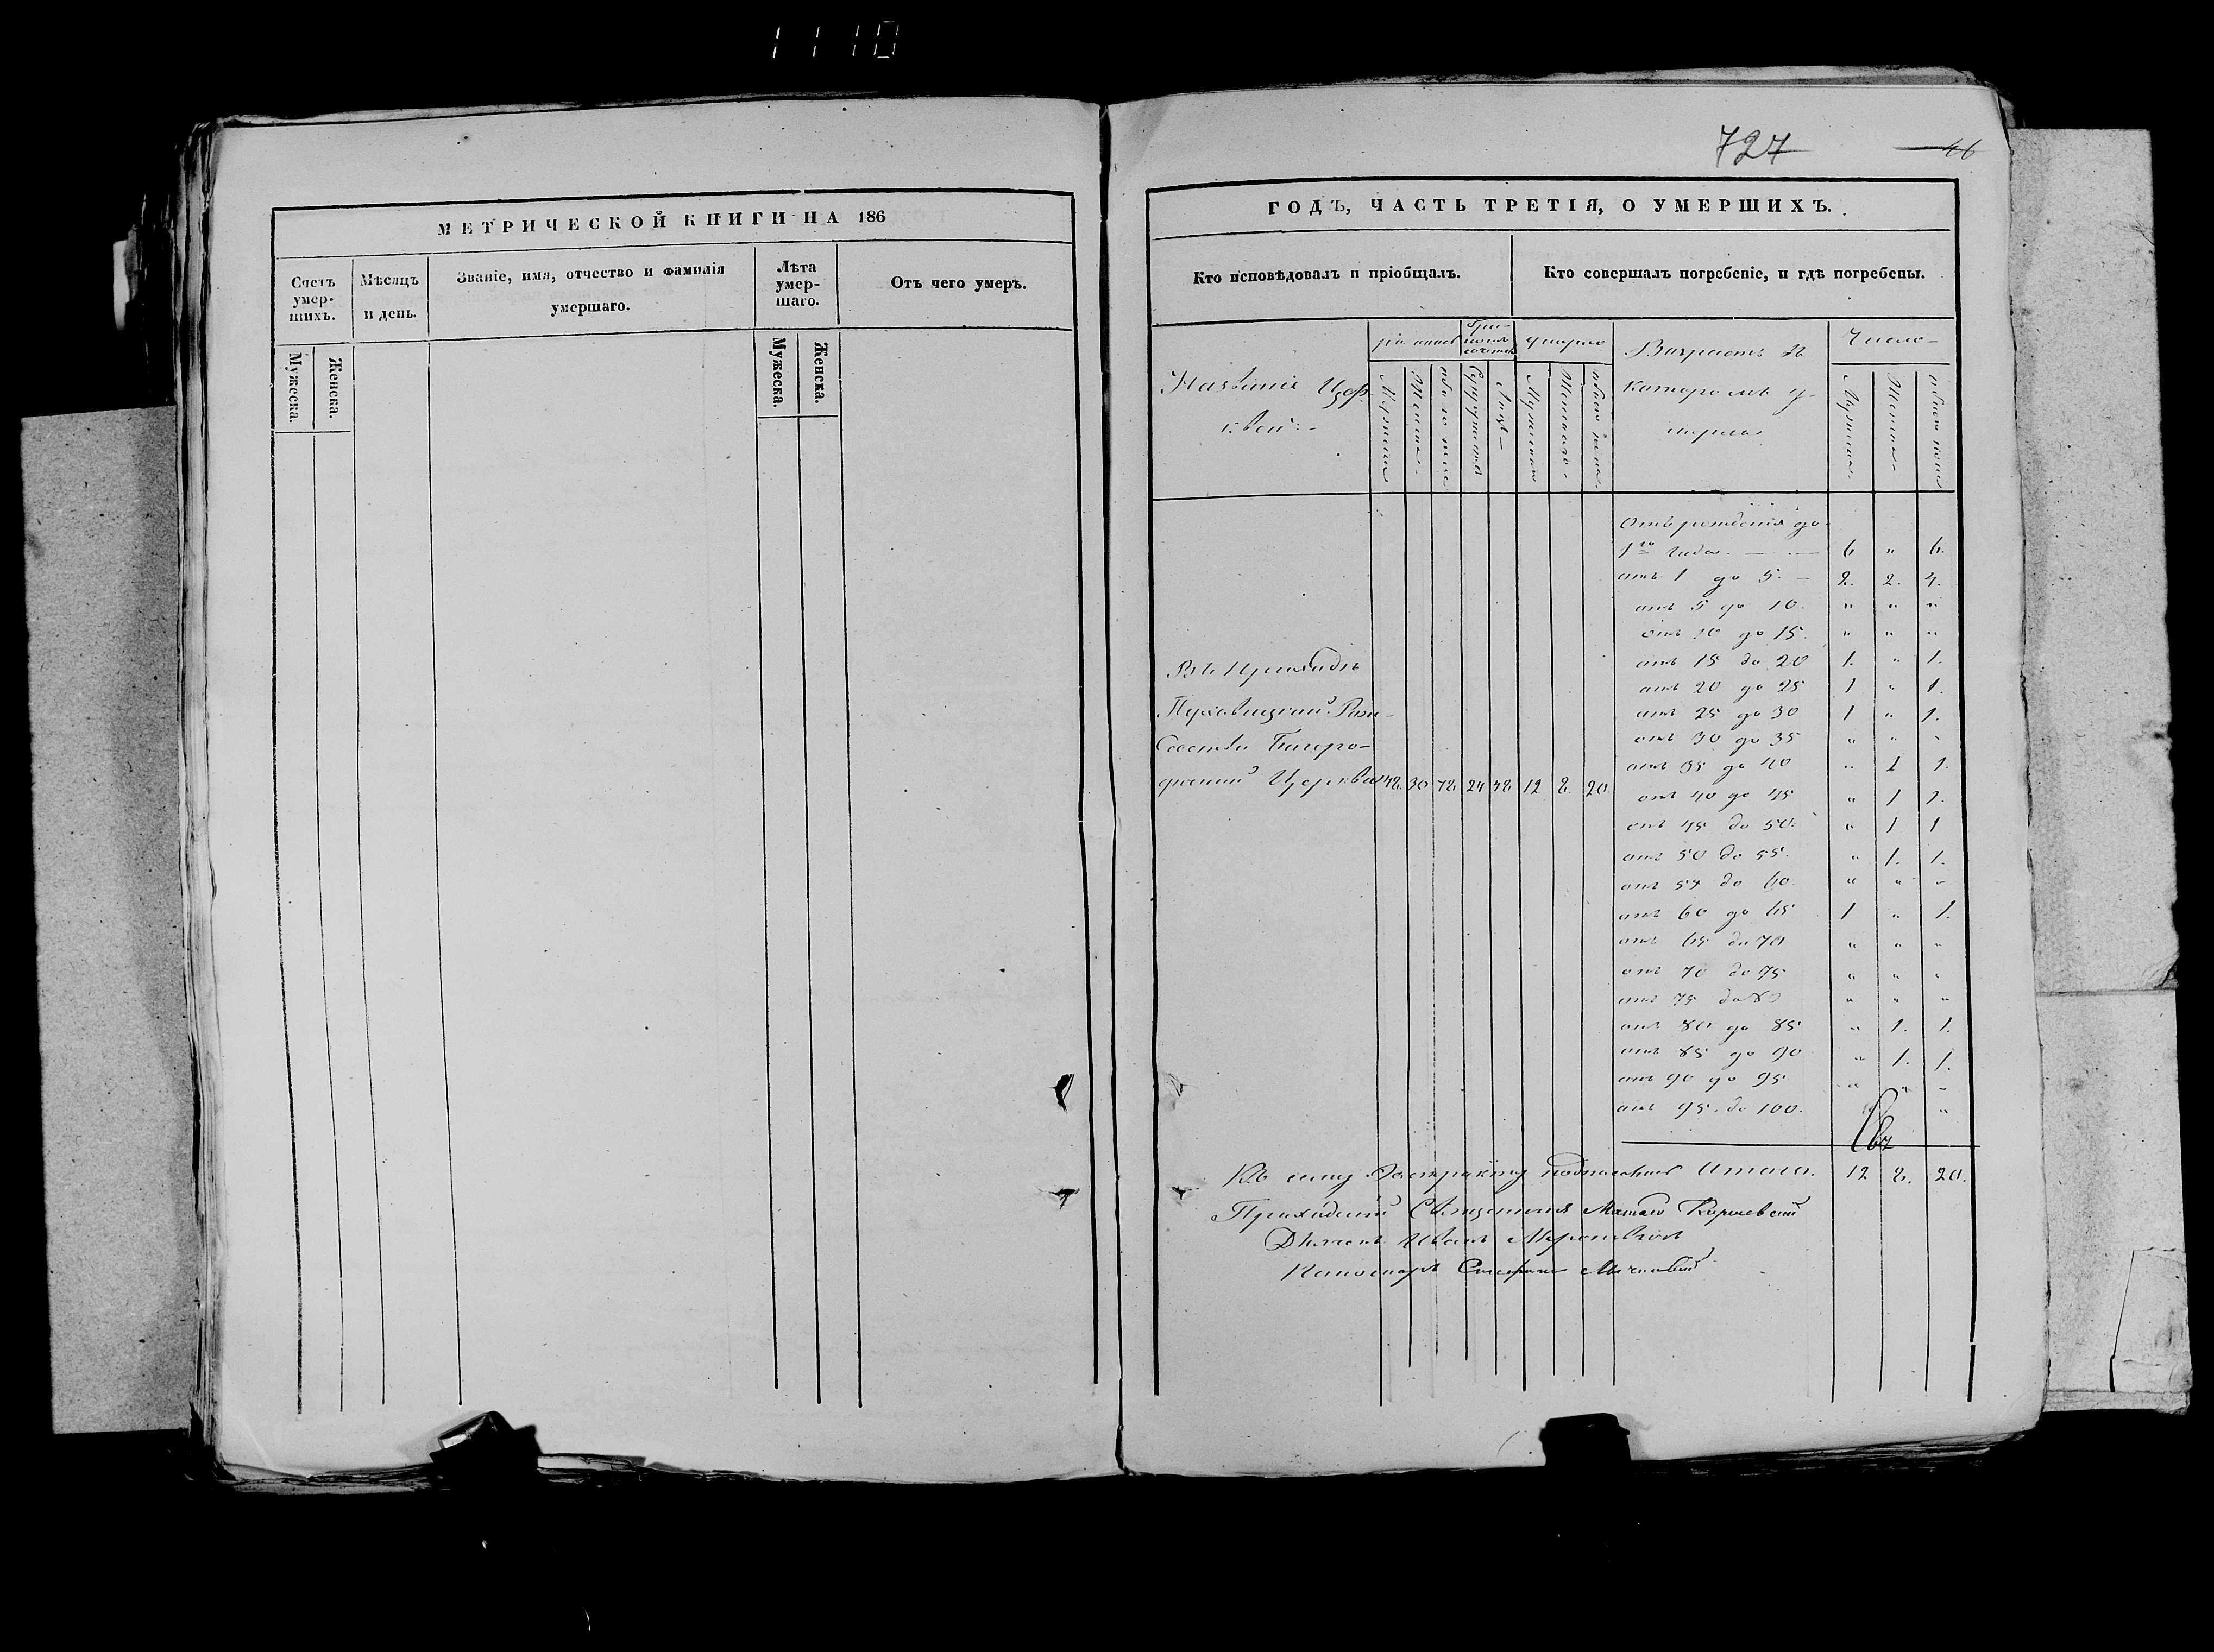 1110
727
46
МЕТРИЧЕСКОЙ КНИГИ НА 186
Счетъ умер- шихъ.
Мѣсяцъ и день.
Званіе, имя, отчество и фамилія умершаго.
Лѣта умер- шаго.
Отъ чего умеръ.
Мужеска.
Женска.
Мужеска.
Женска.
ГОДЪ, ЧАСТЬ ТРЕТІЯ, О УМЕРШИХЪ.
Кто исповѣдовалъ и пріобщалъ.
Кто совершалъ погребеніе, и гдѣ погребены.
Названіе Цер-
квей
Возрастъ въ
которомъ у-
мерли
Число
Мужеска
Женска
обоего пола
Отъ рожденія до
1го года. 6 " 6.
отъ 1 до 5. 2. 2. 4.
отъ 5 до 10. " " "
отъ 10 до 15. " " "
отъ 15 до 20 1. " 1.
отъ 20 до 25 1 " 1.
отъ 25 до 30 1 " 1.
отъ 30 до 35 " " "
отъ 35 до 40 " 1 1.
отъ 40 до 45 " 1 1.
отъ 45 до 50. " 1 1
отъ 50 до 55. " 1. 1.
отъ 55 до 60. " " "
отъ 60 до 65 1 " 1.
отъ 65 до 70 " " "
отъ 70 до 75 " " "
отъ 75 до 80 " " "
отъ 80 до 85 " 1. 1.
отъ 85 до 90 " 1. 1.
отъ 90 до 95 " " "
отъ 95. до 100. "
Въ Приходѣ
Пуховицкой Рож-
дества Богоро-
дичной Церкви 48. 30 78 24 48 12 8. 20.
Итого. 12 8. 20.
Къ сему Экстракту подписались
Приходскій Священникъ
Дьяконъ Иванъ
Пономарь